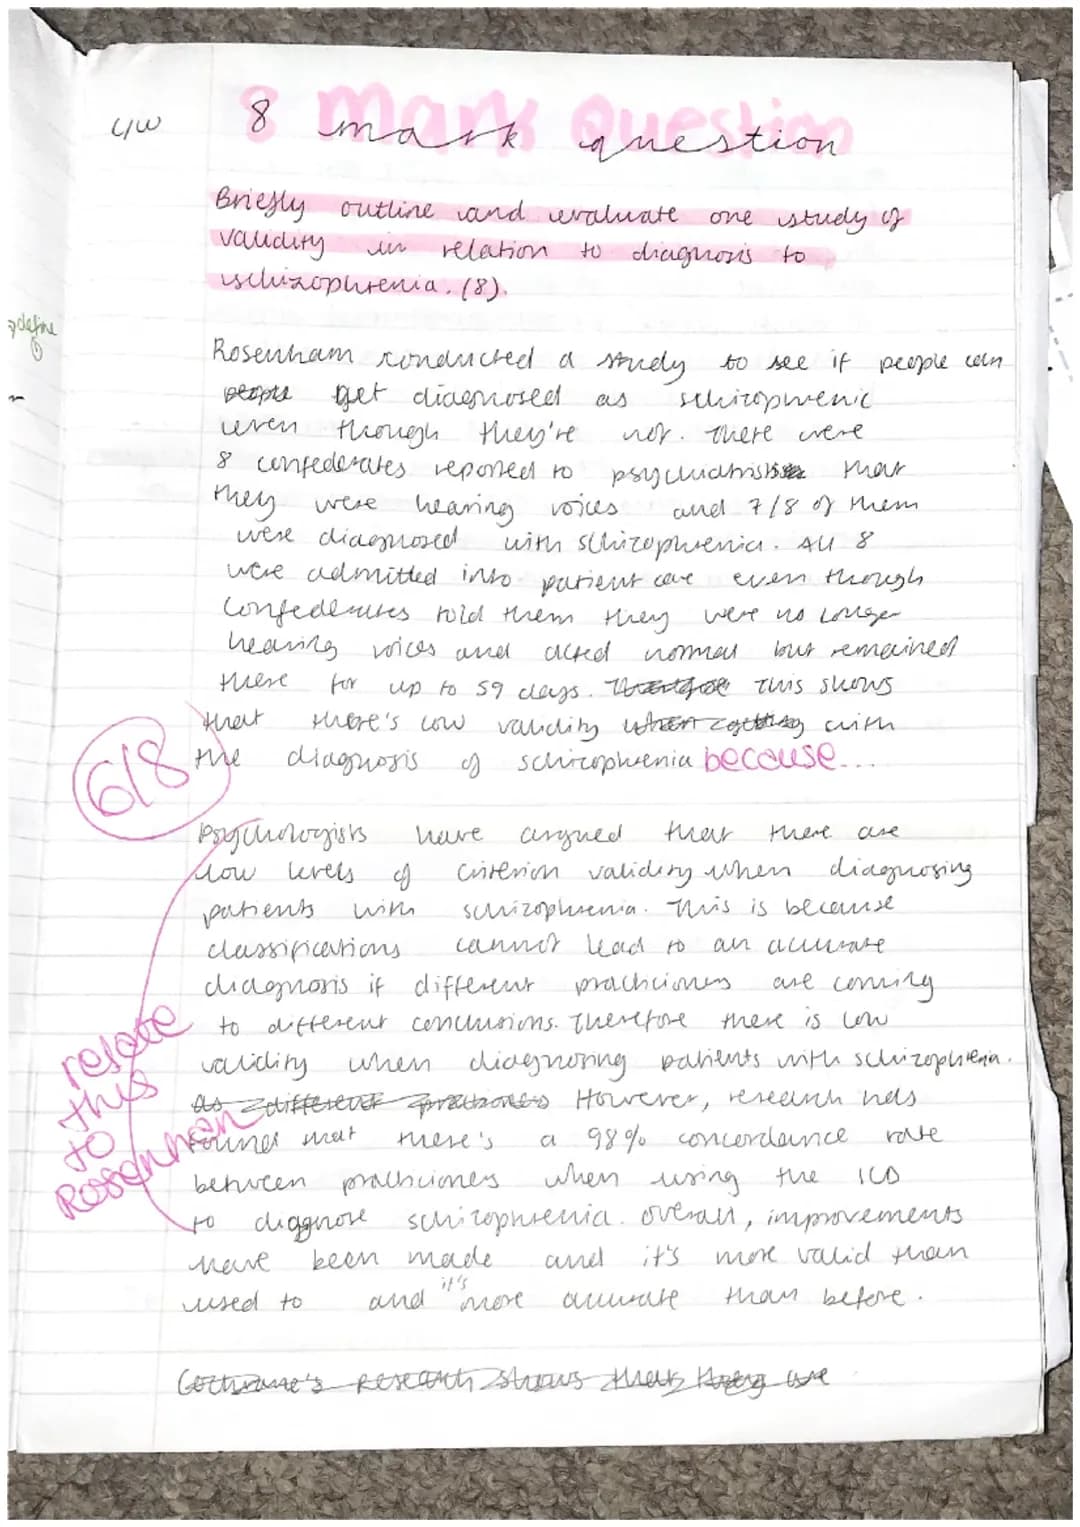 C/W
8 mark question
8 Mark Question
Briefly outline and evaluate one study of
validity in relation to diagnosis to
schizophrenia. (8).
define
Rosenham conducted a study to see if people can
people get diagnosed as schizophrenic
even though they're not. There were
8 confederates reported to psychiatrists that
they were hearing voices and 7/8 of them
were diagnosed with schizophrenia. All 8
were admitted into patient care even though
confederates told them they were no longer
hearing voices and acted normal but remained
there for up to 59 days. Therefore This shows
that there's low validity when getting with
the diagnosis of schizophrenia because...
6/8
Psychologists have argued that there are
low levels of criterion validity when diagnosing
patients with schizophrenia. This is because
classifications cannot lead to an accurate
diagnosis if different practicioners are coming
to different conclusions. Therefore there is low
validity when diagnosing patients with schizophrenia.
as different practioners However, research has
found that there's a 98% concordance rate
between practicioners when using the ICD
to diagnose schizophrenia. Overall, improvements
have been made and it's more valid than
used to and it's more accurate than before.
relate
this
to
Rosenhan
Cochrane's research shows that they are